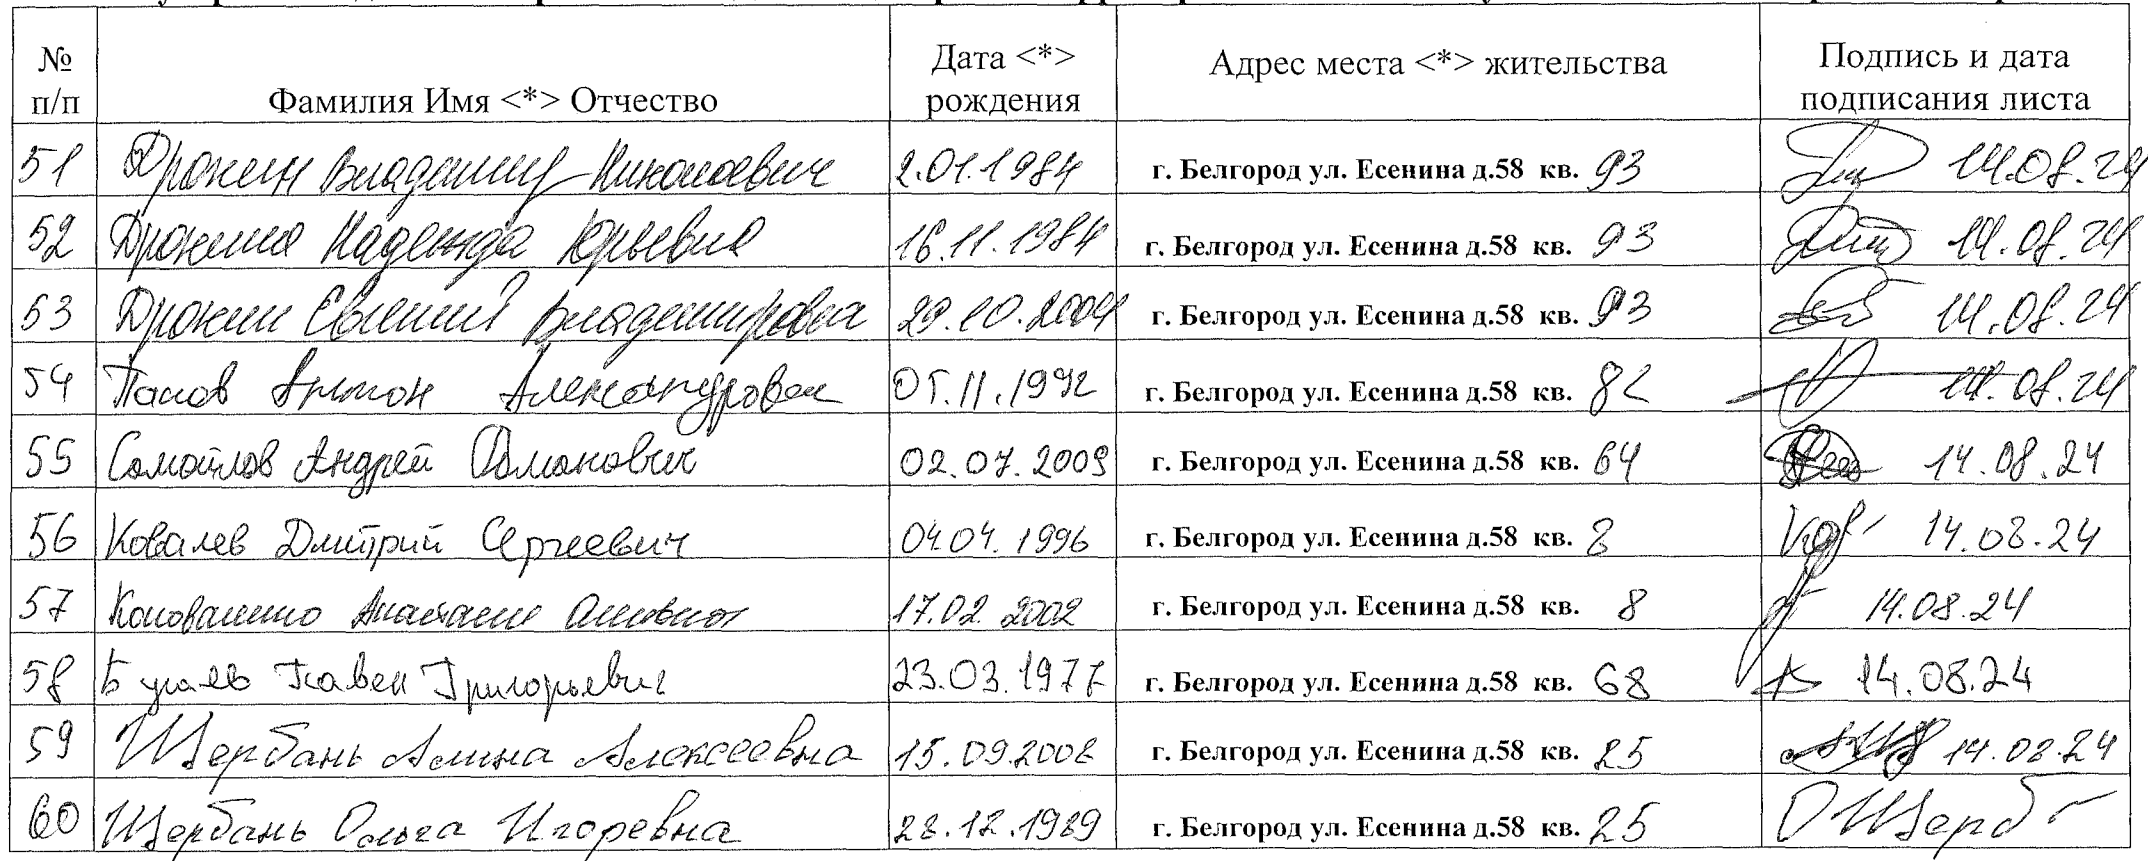 № п/п Фамилия Имя <*> Отчество Дата <*> рождения Адрес места <*> жительства Подпись и дата подписания листа
51 Дрокин Владимир Николаевич 2.01.1984 г. Белгород ул. Есенина д.58 кв. 93 14.08.24
52 Дрокина Надежда Юрьевна 16.11.1984 г. Белгород ул. Есенина д.58 кв. 93 14.08.24
53 Дрокин Евгений Владимирович 29.10.2004 г. Белгород ул. Есенина д.58 кв. 93 14.08.24
54 Антон Александрович 05.11.1992 г. Белгород ул. Есенина д.58 кв. 82 14.08.24
55 Самойлов Андрей Романович 02.07.2009 г. Белгород ул. Есенина д.58 кв. 64 14.08.24
56 Ковалев Дмитрий Сергеевич 04.04.1996 г. Белгород ул. Есенина д.58 кв. 8 14.08.24
57 17.02.2002 г. Белгород ул. Есенина д.58 кв. 8 14.08.24
58 Павел Григорьевич 23.03.1977 г. Белгород ул. Есенина д.58 кв. 68 14.08.24
59 Щербань Алина Алексеевна 15.09.2008 г. Белгород ул. Есенина д.58 кв. 25 14.08.24
60 Щербань Ольга Игоревна 28.12.1989 г. Белгород ул. Есенина д.58 кв. 25 ОЩерб